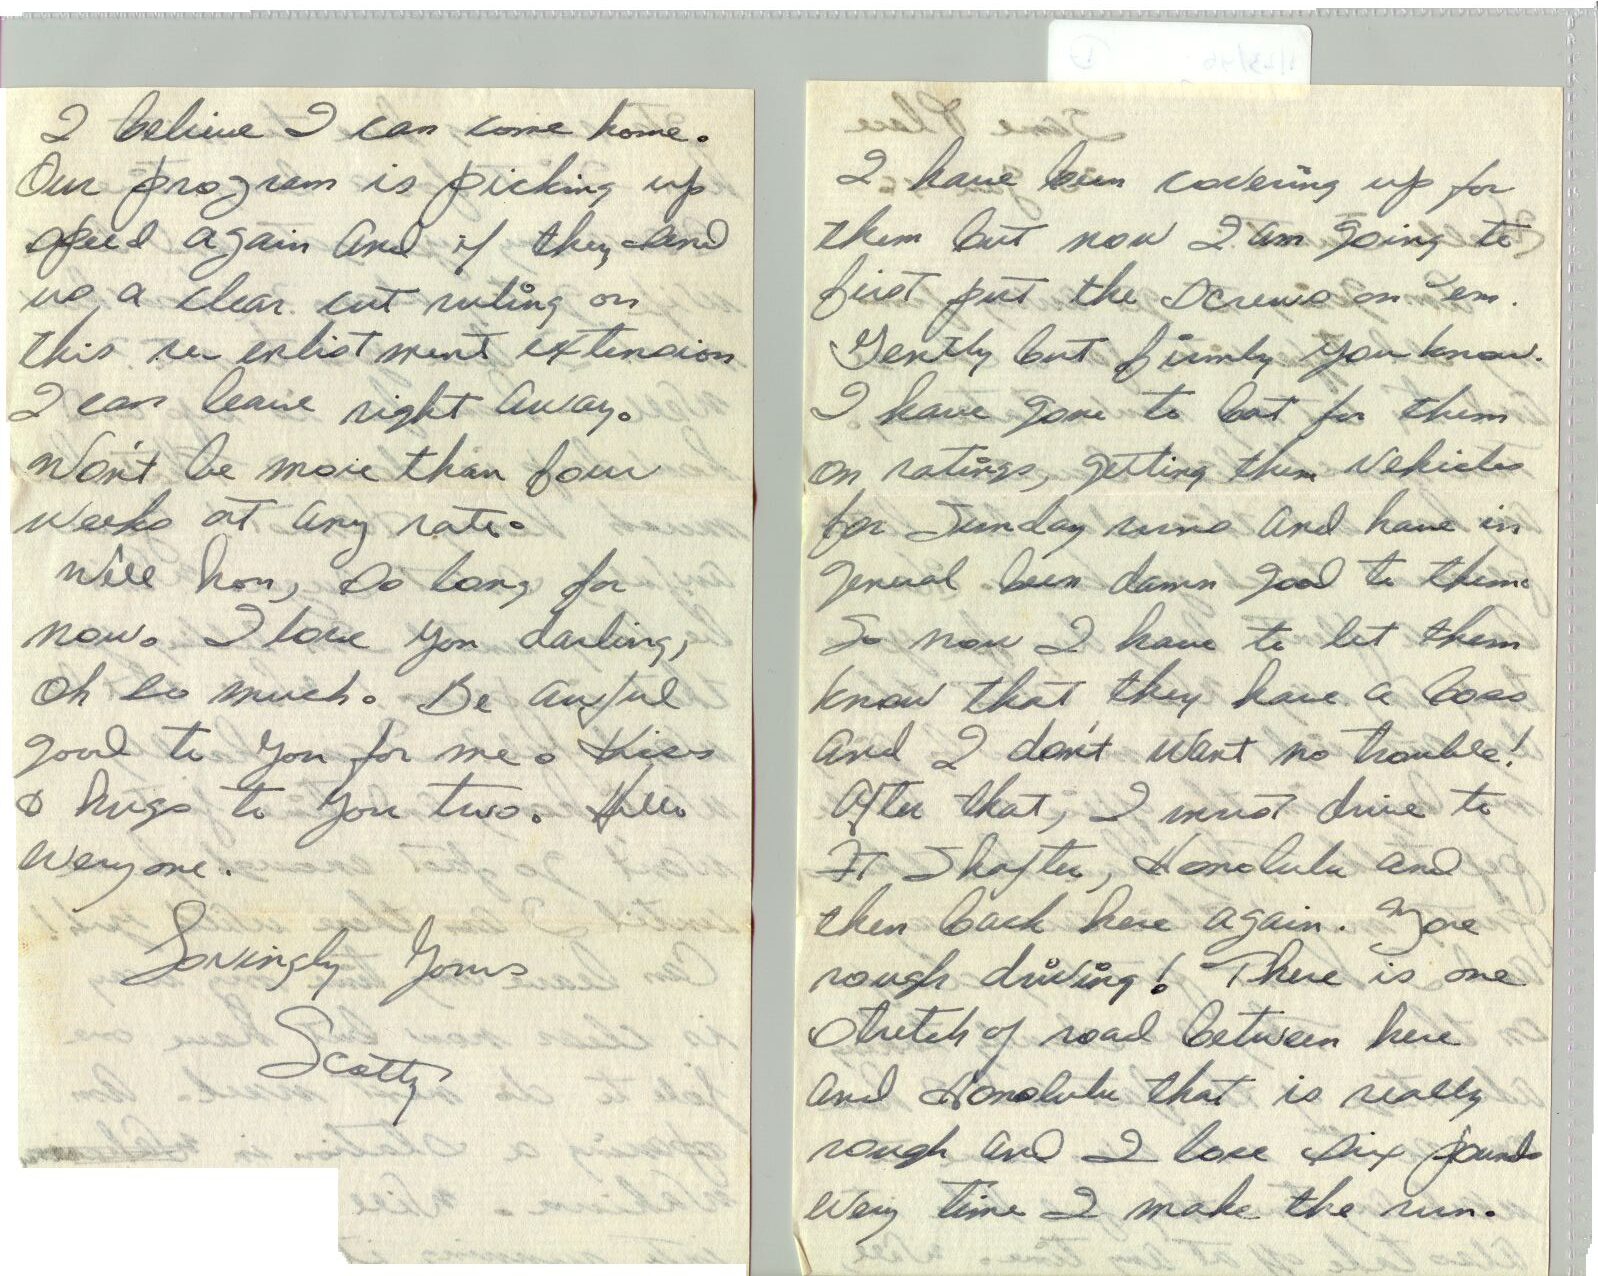 I believe I can come home.
Our program is picking up
speed again and if they send
us a clear cut ruling on
this re enlistment extension
I can leave right away.
Won't be more than four
weeks at any rate.
Well hon, so long for
now. I love you darling,
Oh so much. Be awful
good to you for me. Kiss
& hugs to you two. Hello
everyone.
Lovingly Yours
Scotty
I have been covering up for
them but now I am going to
first put the screws on 'em.
Gently but firmly you know.
I have gone to bat for them
on ratings, getting them vehicles
for Sunday runs and have in
general been damn good to them.
So now I have to let them
know that they have a boss
and I don't want no trouble!
After that, I must drive to
Ft Shafter, Honolulu and
then back here again. More
rough driving! There is one
stretch of road between here
and Honolulu that is really
rough and I lose six pounds
every time I make the run.